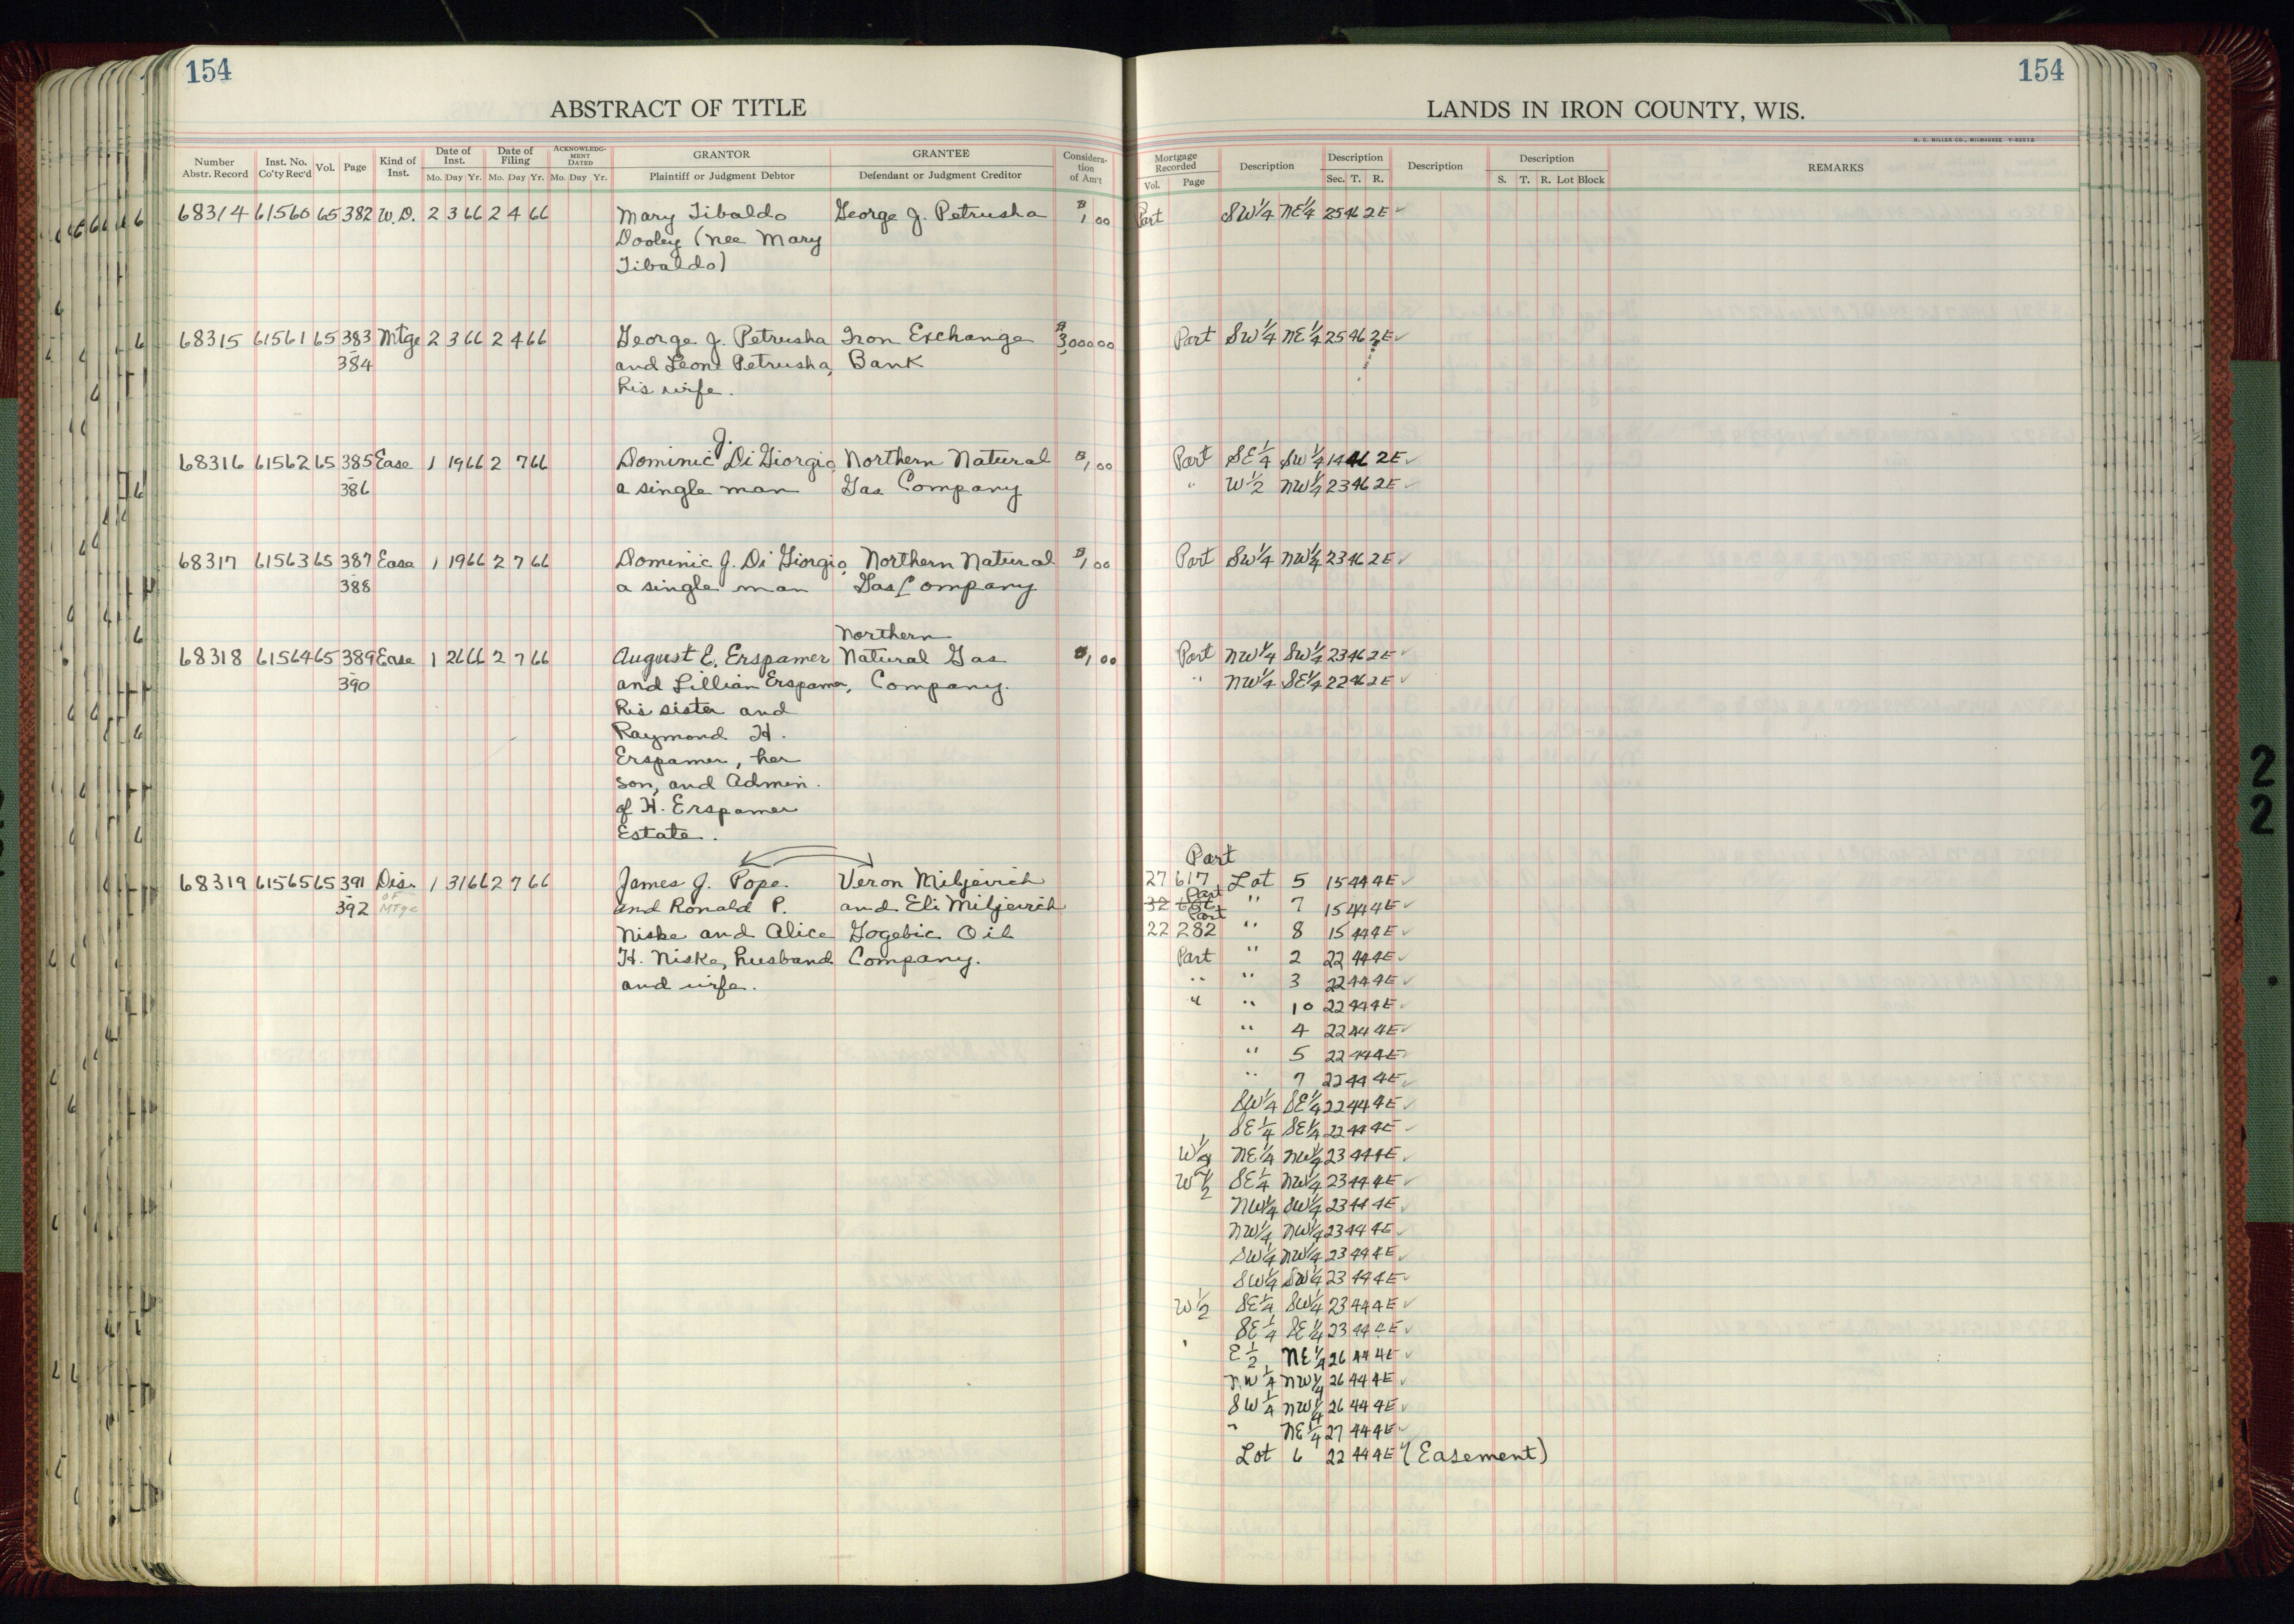 154
154
ABSTRACT OF TITLE
LANDS IN IRON COUNTY, WIS.
H. C. MILLER CO., MILWAUKEE
Number Abstr. Record
Inst. No. Co'ty Rec'd
Vol.
Page
Kind of Inst.
Date of Inst.
Mo. Day Yr.
Date of Filing
Mo. Day Yr.
ACKNOWLEDGMENT DATED
Mo. Day Yr.
GRANTOR
Plaintiff or Judgment Debtor
GRANTEE
Defendant or Judgment Creditor
Consideration of Am't
Mortgage Recorded
Vol. Page
Description
Description
Sec. T. R.
Description
Description
S. T. R. Lot Block
REMARKS
68314 61560 65 382 W.D. 2 3 66 2 4 66 Mary Tibaldo George J. Petrusha $1,00 Part SW1/4 NE1/4 25 46 2E ✓
Dooley (nee Mary
Tibaldo)
68315 61561 65 383 Mtge 2 3 66 2 4 66 George J. Petrusha Iron Exchange $3,000 00 Part SW1/4 NE1/4 25 46 2E ✓
384 and Leone Petrusha, Bank
his wife.
68316 61562 65 385 Ease 1 19 66 2 7 66 Dominic J. Di Giorgio, Northern Natural $1,00 Part SE1/4 SW1/4 14 46 2E ✓
386 a single man Gas Company " W1/2 NW1/4 23 46 2E ✓
68317 61563 65 387 Ease 1 19 66 2 7 66 Dominic J. Di Giorgio, Northern Natural $1,00 Part SW1/4 NW1/4 23 46 2E ✓
388 a single man Gas Company
Northern
68318 61564 65 389 Ease 1 26 66 2 7 66 August E. Erspamer Natural Gas $1,00 Part NW1/4 SW1/4 23 46 2E ✓
390 and Lillian Erspamer, Company. " NW1/4 SE1/4 22 46 2E ✓
his sister and
Raymond H.
Erspamer, her
son, and Admin.
of H. Erspamer
Estate.
Part
68319 61565 65 391 Dis. 1 31 66 2 7 66 James J. Pope. Veron Miljevich 27 617 Lot 5 15 44 4E ✓
Part
392 OF MTge and Ronald P. and Eli Miljevich 32 " 7 15 44 4E ✓
Part
Niske and Alice Gogebic Oil 22 282 " 8 15 44 4E ✓
H. Niske, husband Company. Part " 2 22 44 4E ✓
and wife. " " 3 22 44 4E ✓
" " 10 22 44 4E ✓
" 4 22 44 4E ✓
" 5 22 44 4E ✓
" 7 22 44 4E ✓
SW1/4 SE1/4 22 44 4E ✓
SE1/4 SE1/4 22 44 4E ✓
W1/2 NE1/4 NW1/4 23 44 4E ✓
W1/2 SE1/4 NW1/4 23 44 4E ✓
NW1/4 SW1/4 23 44 4E ✓
NW1/4 NW1/4 23 44 4E ✓
SW1/4 NW1/4 23 44 4E ✓
SW1/4 SW1/4 23 44 4E ✓
W1/2 SE1/4 SW1/4 23 44 4E ✓
SE1/4 SE1/4 23 44 4E ✓
E1/2 NE1/4 26 44 4E ✓
NW1/4 NW1/4 26 44 4E ✓
SW1/4 NW1/4 26 44 4E ✓
" NE1/4 27 44 4E ✓
Lot 6 22 44 4E ✓ (Easement)
22